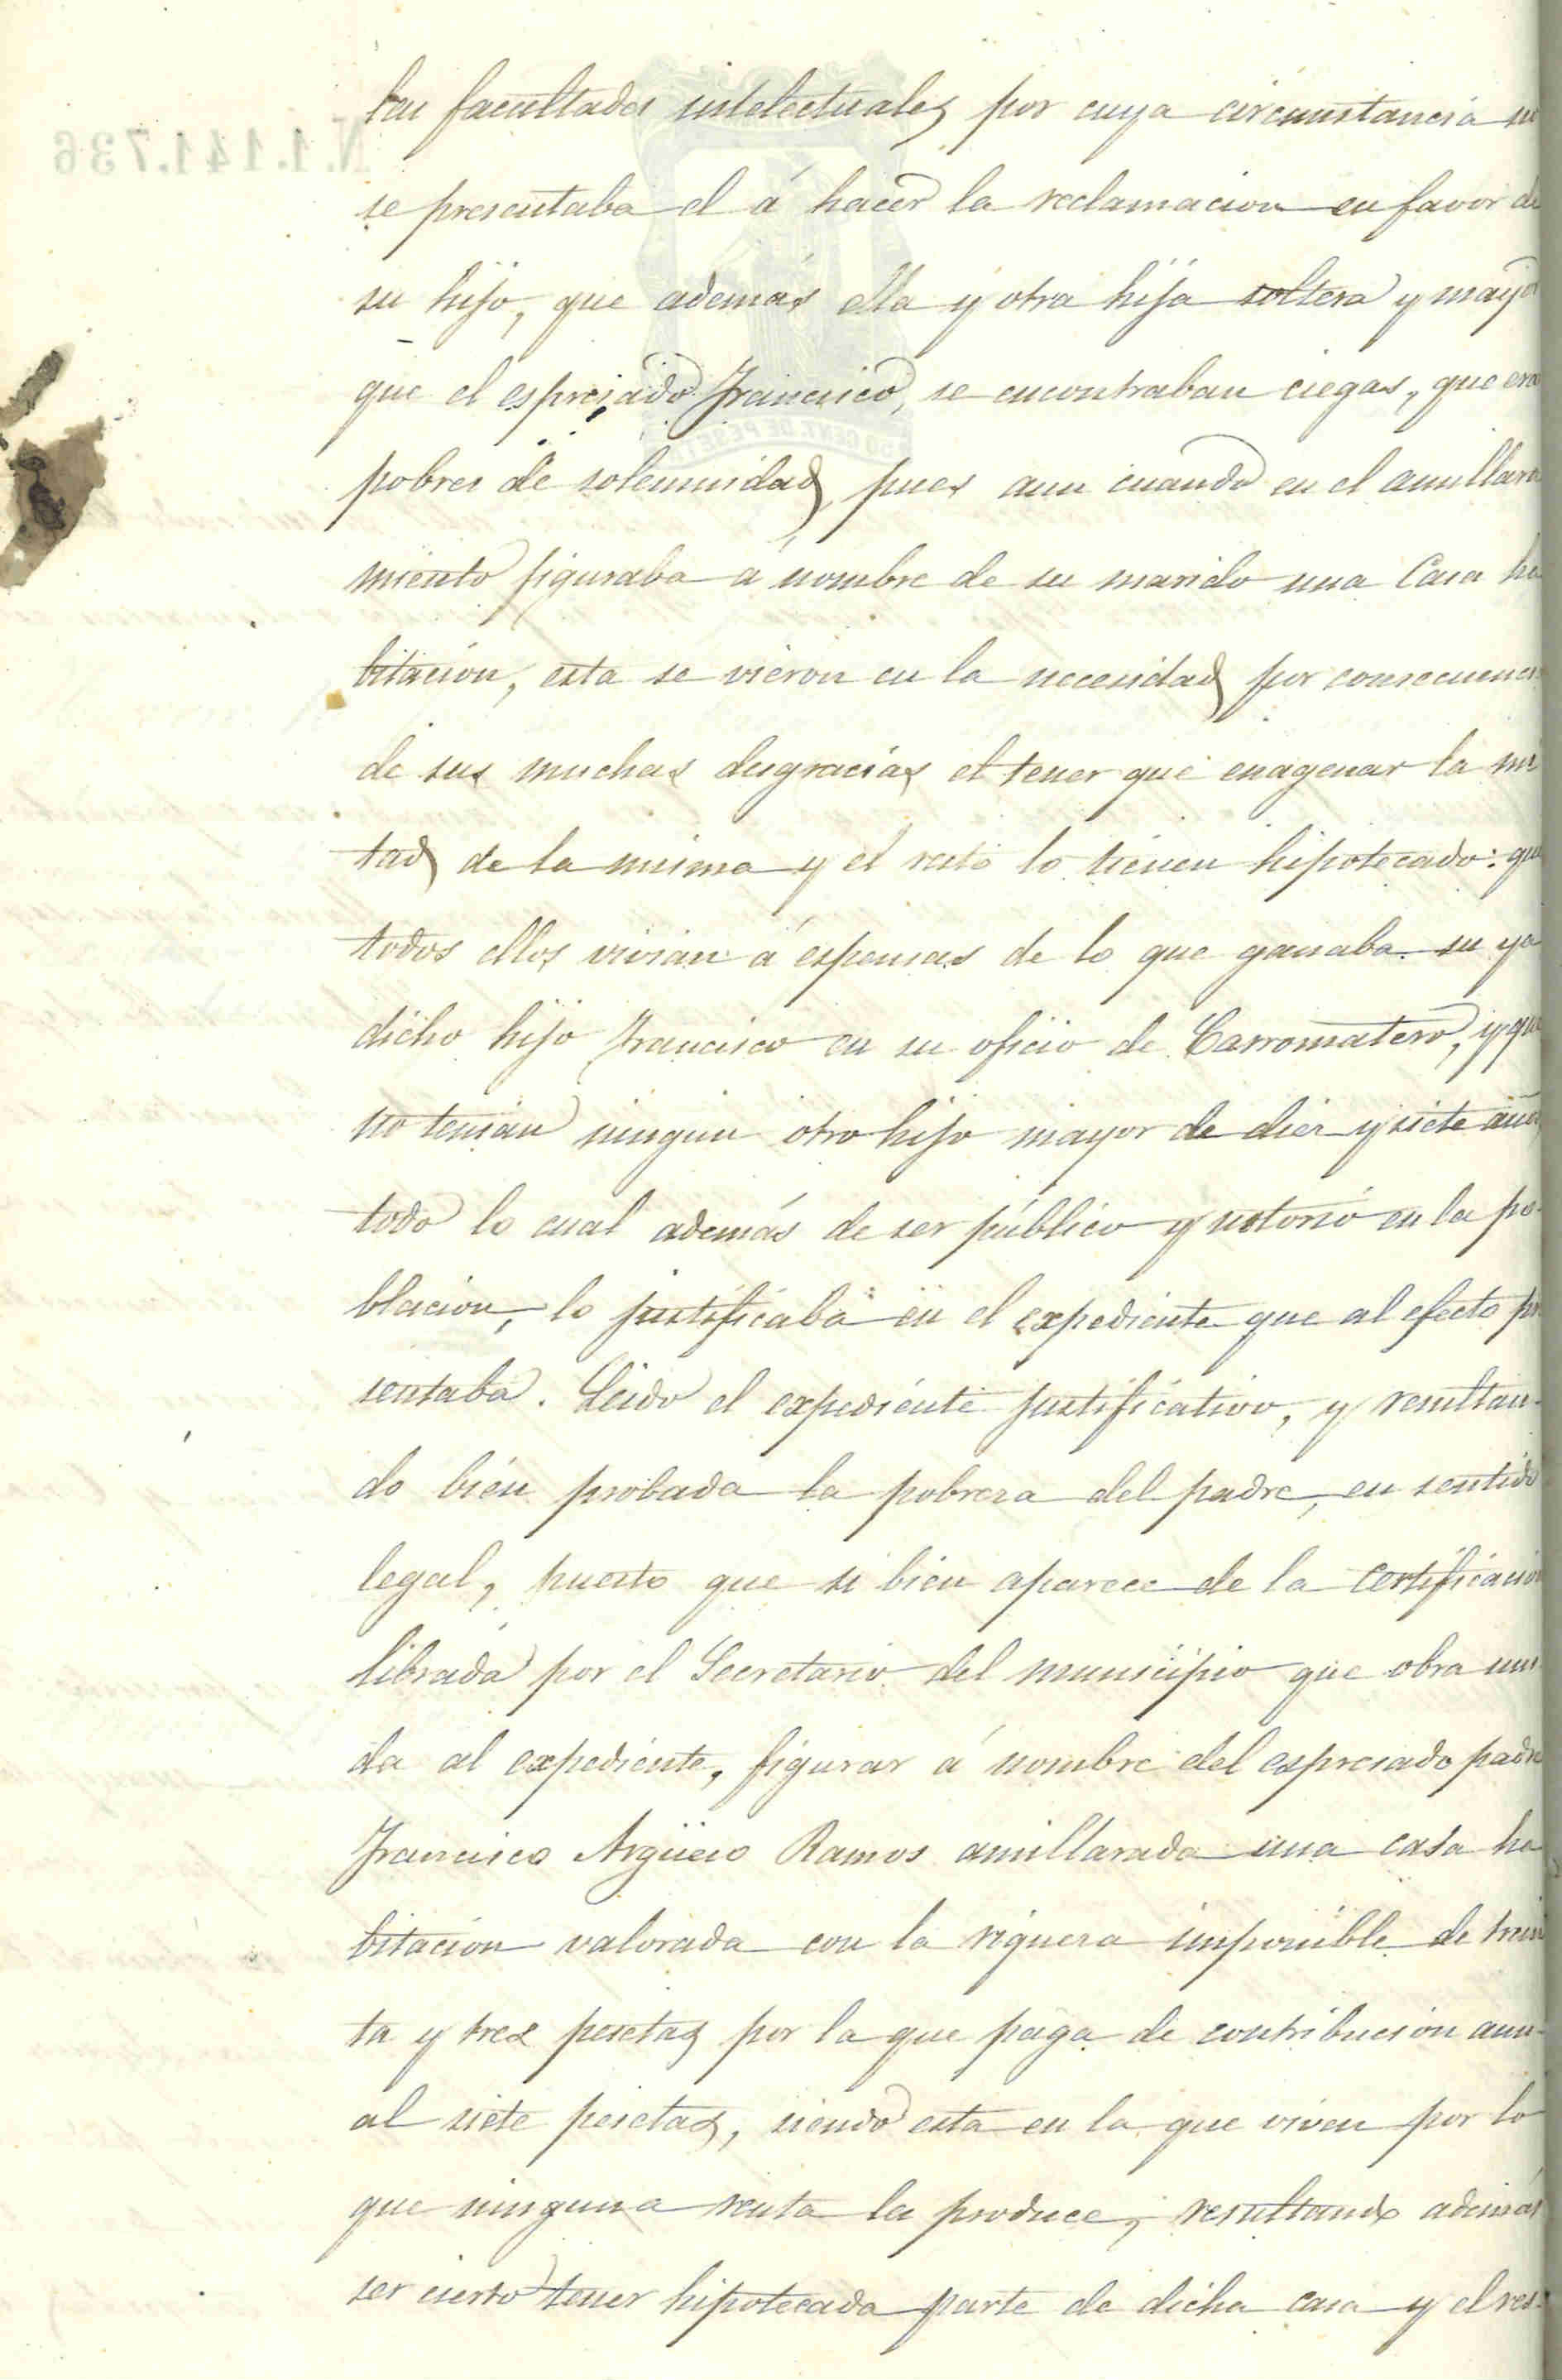 las facultades intelectuales por cuya circunstancia no
se presentaba el á hacer la reclamacion en favor de
su hijo, que además ella y otra hija soltera y mayor
que el espresado Francisco, se encontraban ciegas, que eran
pobres de solemnidad, pues aun cuando en el amillara
miento figuraba á nombre de su marido una Casa ha
bitacion, esta se vieron en la necesidad por consecuencia
de sus muchas desgracias el tener que enagenar la mi
tad de la misma y el resto lo tienen hipotecado: que
todos ellos vivian á espensas de lo que ganaba su ya
dicho hijo Francisco en su oficio de Carromatero, y que
no tenian ningun otro hijo mayor de diez y siete años
todo lo cual además de ser público y notorio en la po-
blacion, lo justificaba en el expediente que al efecto pre
sentaba. Leido el expediente justificativo, y resultan-
do bien probada la pobreza del padre, en sentido
legal, puesto que si bien aparece de la certificacion
librada por el Secretario del municipio que obra uni
da al expediente, figurar á nombre del espresado padre
Francisco Argüeso Ramos amillarada una casa ha
bitacion valorada con la riqueza imponible de trein
ta y tres pesetas por la que paga de contribucion anu-
al siete pesetas, siendo esta en la que viven por lo
que ninguna renta la produce, resultando además
ser cierto tener hipotecada parte de dicha casa y el res-
N.1.141.736
50 CENT. DE PESETA